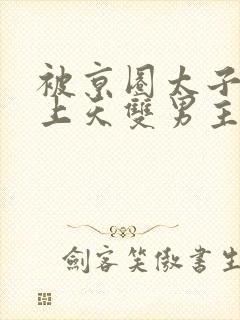 被京圈太子
上天雙男主
劍客笑傲書生